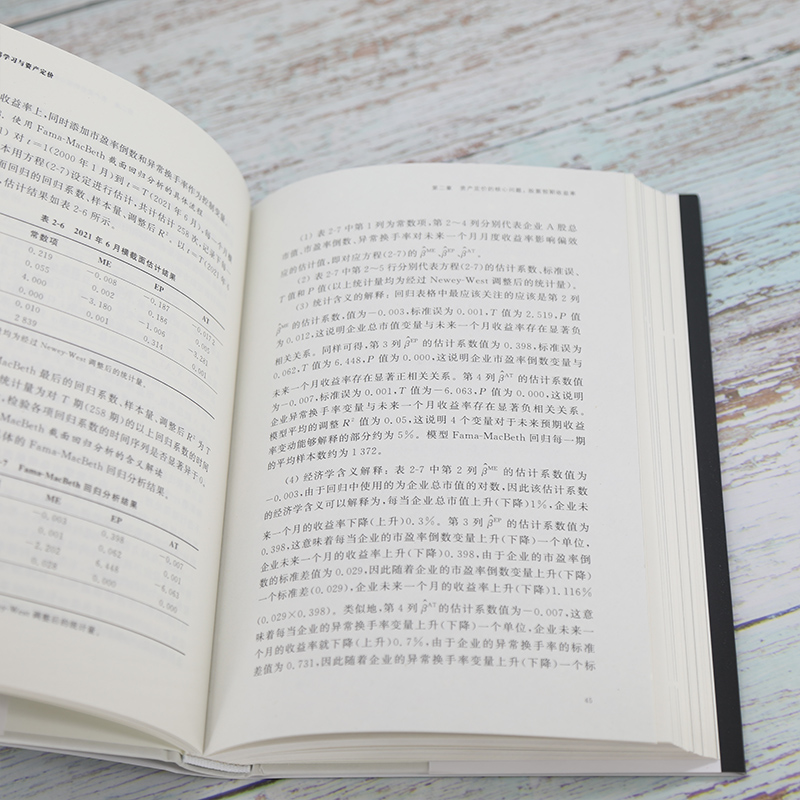 学习与资产定价
收益率上,同时添加市盈率倒数和异常换手率作为控制变量。
使用 Fama-MacBeth 截面回归分析的具体流程
对 t=1(2000 年 1 月)到 t=T(2021 年 6 月),每一个
本用方程(2-7)设定进行估计,共计估计 258 次,记录下每一
面回归的回归系数、样本量、调整后 R²。以 t=T(2021 年 6
,估计结果如表 2-6 所示。
表 2-6 2021 年 6 月横截面估计结果
常数项 ME EP AT
0.219 -0.008 0.187 -0.017 2
0.055 0.002 0.186 0.005
4.000 -3.180 -1.006 -3.221
0.000 0.001 0.314 0.001
0.010
2 839
均为经过 Newey-West 调整后的统计量。
MacBeth 最后的回归系数、样本量、调整后 R² 为 T
统计量为对 T 期(258 期)的以上回归系数的时间
,检验各项回归系数的时间序列是否显著于 0。
MacBeth 截面回归分析的含义解读
体的 Fama-MacBeth 回归分析结果。
-7 Fama-MacBeth 回归分析结果
ME EP AT
-0.003 0.398 -0.007
0.001 0.062 0.001
-2.202 6.448 -6.063
0.028 0.000 0.000
-West 调整后的统计量。
第二章 资产定价的核心问题:股票预期收益率
(1) 表 2-7 中第 1 列为常数项,第 2~4 列分别代表企业 A 股总
市值、市盈率倒数、异常换手率对未来一个月月度收益率影响偏效
应的估计值,即对应方程(2-7)的 β̂ᴹᴱ、β̂ᴱᴾ、β̂ᴬᵀ。
(2) 表 2-7 中第 2~5 行分别代表方程(2-7)的估计系数、标准误、
T 值和 P 值(以上统计量均为经过 Newey-West 调整后的统计量)。
(3) 统计含义的解释:回归表格中最应该关注的应该是第 2 列
β̂ᴹᴱ 的估计系数,值为-0.003,标准误为 0.001,T 值为 2.519,P 值
为 0.012,这说明企业总市值变量与未来一个月收益率存在显著负
相关关系。同样可得,第 3 列 β̂ᴱᴾ 的估计系数值为 0.398,标准误为
0.062,T 值为 6.448,P 值为 0.000,这说明企业市盈率倒数变量与
未来一个月收益率存在显著正相关关系。第 4 列 β̂ᴬᵀ 的估计系数值
为-0.007,标准误为 0.001,T 值为-6.063,P 值为 0.000,这说明
企业异常换手率变量与未来一个月收益率存在显著负相关关系。
模型平均的调整 R² 值为 0.05,这说明 4 个变量对于未来预期收益
率变动能够解释的部分约为 5%。模型 Fama-MacBeth 回归每一期
的平均样本数约为 1 372。
(4) 经济学含义解释:表 2-7 中第 2 列 β̂ᴹᴱ 的估计系数值为
-0.003,由于回归中使用的为企业总市值的对数,因此该估计系数
的经济学含义可以解释为,每当企业总市值上升(下降)1%,企业未
来一个月的收益率下降(上升)0.3%。第 3 列 β̂ᴱᴾ 的估计系数值为
0.398,这意味着每当企业的市盈率倒数变量上升(下降)一个单位,
企业未来一个月的收益率上升(下降)0.398,由于企业的市盈率倒
数的标准差值为 0.029,因此随着企业的市盈率倒数变量上升(下降)
一个标准差(0.029),企业未来一个月的收益率上升(下降)1.116%
(0.029×0.398)。类似地,第 4 列 β̂ᴬᵀ 的估计系数值为-0.007,这意
味着每当企业的异常换手率变量上升(下降)一个单位,企业未来一
个月的收益率就下降(上升)0.7%,由于企业的异常换手率的标准
差值为 0.731,因此随着企业的异常换手率变量上升(下降)一个标
45